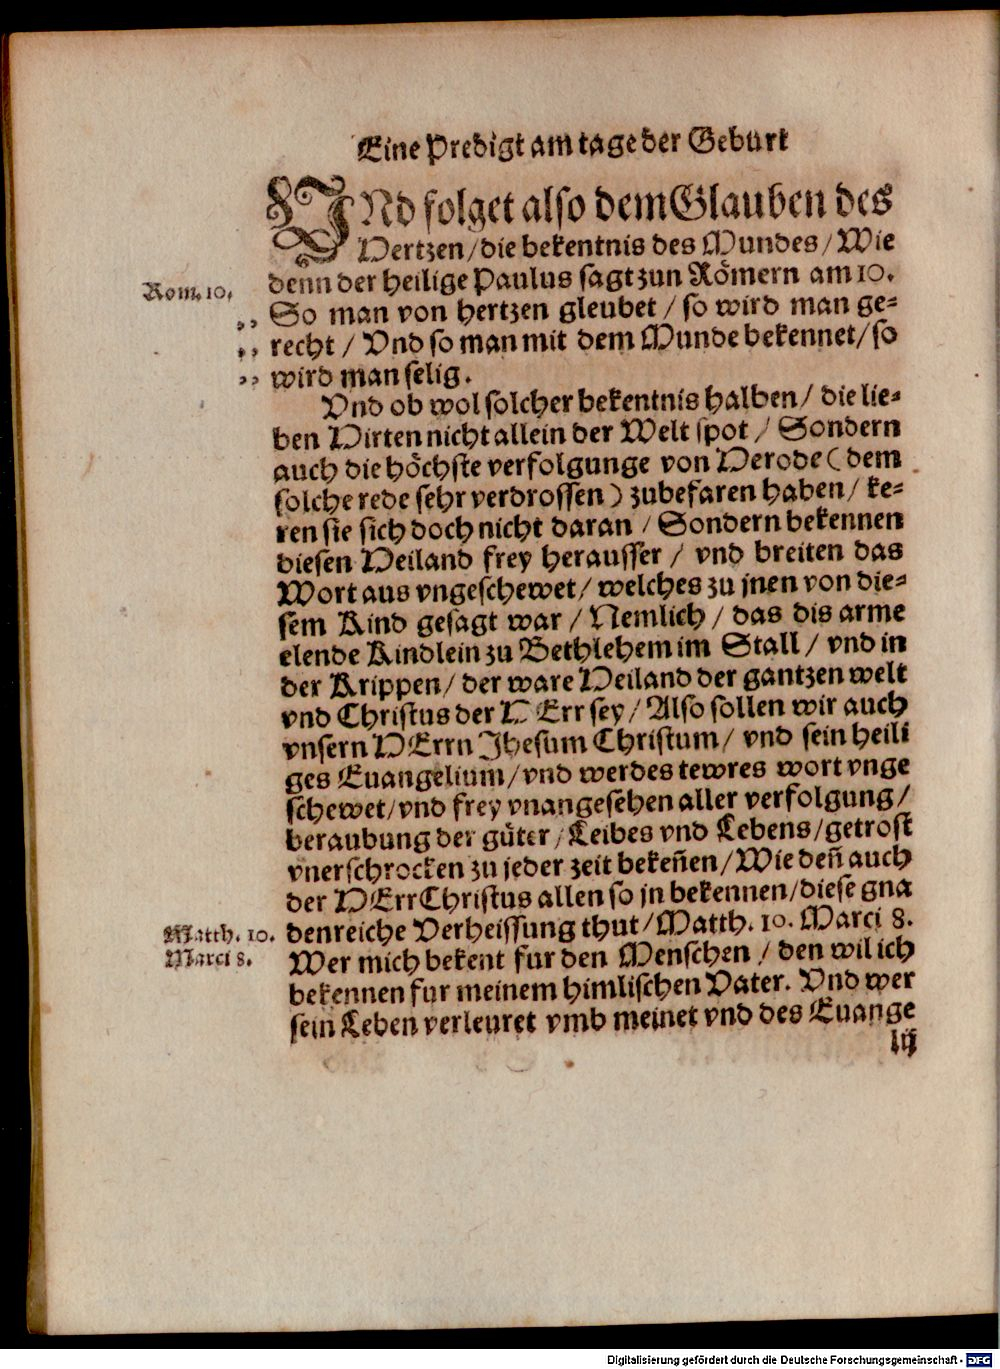 Eine Predigt am tage der Geburt
VNd folget also dem Glauben des
Hertzen/die bekentnis des Mundes/Wie
denn der heilige Paulus sagt zun Römern am 10.
Rom. 10.
So man von hertzen gleubet / so wird man ge-
recht / Vnd so man mit dem Munde bekennet/so
wird man selig.
Vnd ob wol solcher bekentnis halben/ die lie-
ben Hirten nicht allein der Welt spot / Sondern
auch die höchste verfolgunge von Herode (dem
solche rede sehr verdrossen) zubefaren haben/ ke-
ren sie sich doch nicht daran / Sondern bekennen
diesen Heiland frey herausser / vnd breiten das
Wort aus vngeschewet/ welches zu jnen von die-
sem Kind gesagt war / Nemlich / das dis arme
elende Kindlein zu Bethlehem im Stall / vnd in
der Krippen/ der ware Heiland der gantzen welt
vnd Christus der HErr sey/ Also sollen wir auch
vnsern HErrn Jhesum Christum/ vnd sein heili
ges Euangelium/vnd werdes tewres wort vnge
schewet/vnd frey vnangesehen aller verfolgung/
beraubung der güter/Leibes vnd Lebens/getrost
vnerschrocken zu jeder zeit bekeñen/Wie deñ auch
der HErr Christus allen so jn bekennen/diese gna
denreiche Verheissung thut/Matth. 10. Marci 8.
Matth. 10.
Marci 8.
Wer mich bekent fur den Menschen / den wil ich
bekennen fur meinem himlischen Vater. Vnd wer
sein Leben verleuret vmb meinet vnd des Euange
lij
Digitalisierung gefördert durch die Deutsche Forschungsgemeinschaft - DFG